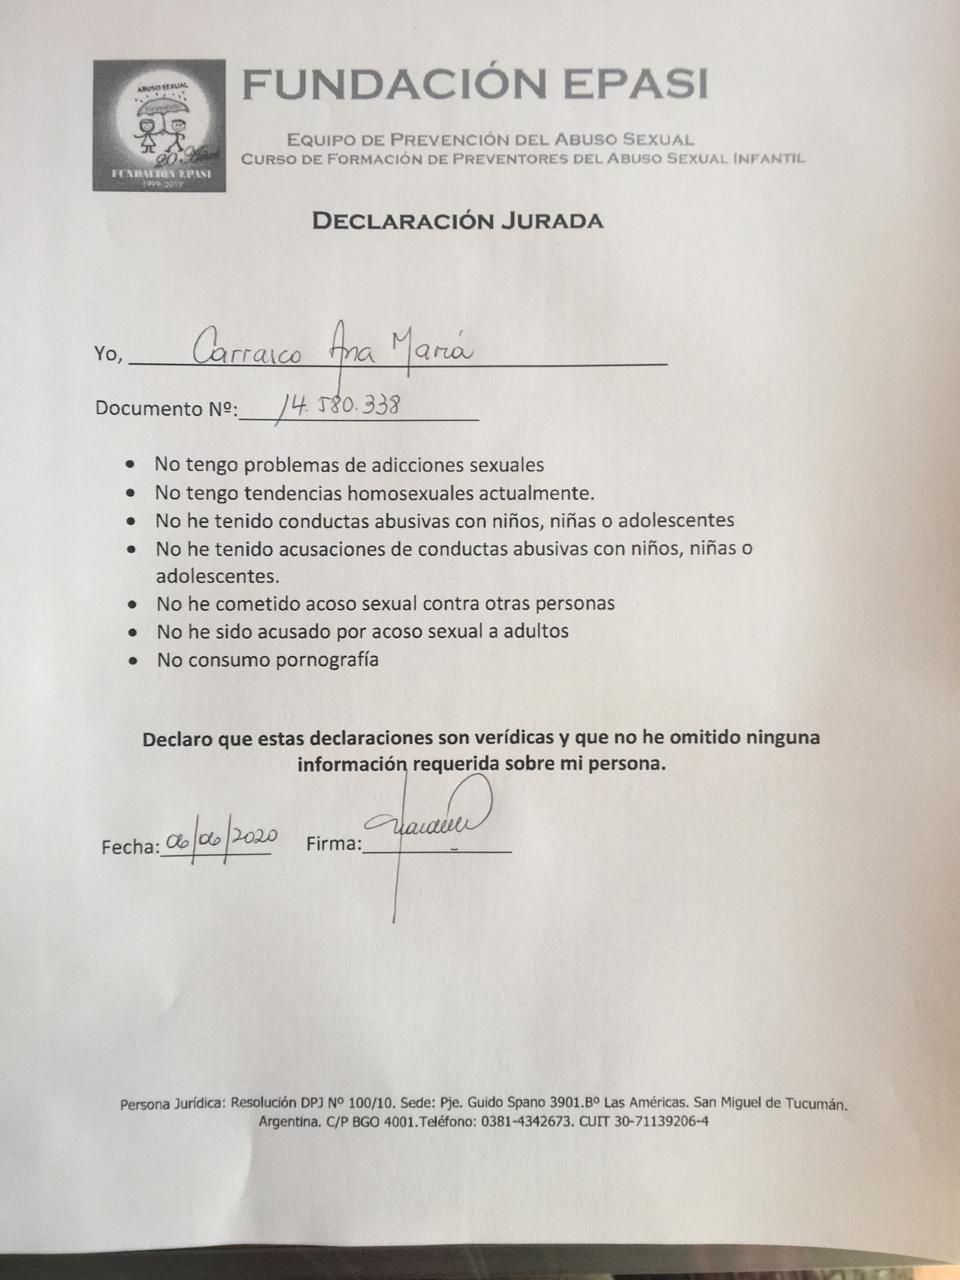 ABUSO SEXUAL
20 Años
FUNDACIÓN EPASI
1999-2019
FUNDACIÓN EPASI
EQUIPO DE PREVENCIÓN DEL ABUSO SEXUAL
CURSO DE FORMACIÓN DE PREVENTORES DEL ABUSO SEXUAL INFANTIL
DECLARACIÓN JURADA
Yo, Carrasco Ana María
Documento Nº: 14.580.338
• No tengo problemas de adicciones sexuales
• No tengo tendencias homosexuales actualmente.
• No he tenido conductas abusivas con niños, niñas o adolescentes
• No he tenido acusaciones de conductas abusivas con niños, niñas o
adolescentes.
• No he cometido acoso sexual contra otras personas
• No he sido acusado por acoso sexual a adultos
• No consumo pornografía
Declaro que estas declaraciones son verídicas y que no he omitido ninguna
información requerida sobre mi persona.
Fecha: 06/06/2020 Firma:
Persona Jurídica: Resolución DPJ Nº 100/10. Sede: Pje. Guido Spano 3901.Bº Las Américas. San Miguel de Tucumán.
Argentina. C/P BGO 4001.Teléfono: 0381-4342673. CUIT 30-71139206-4